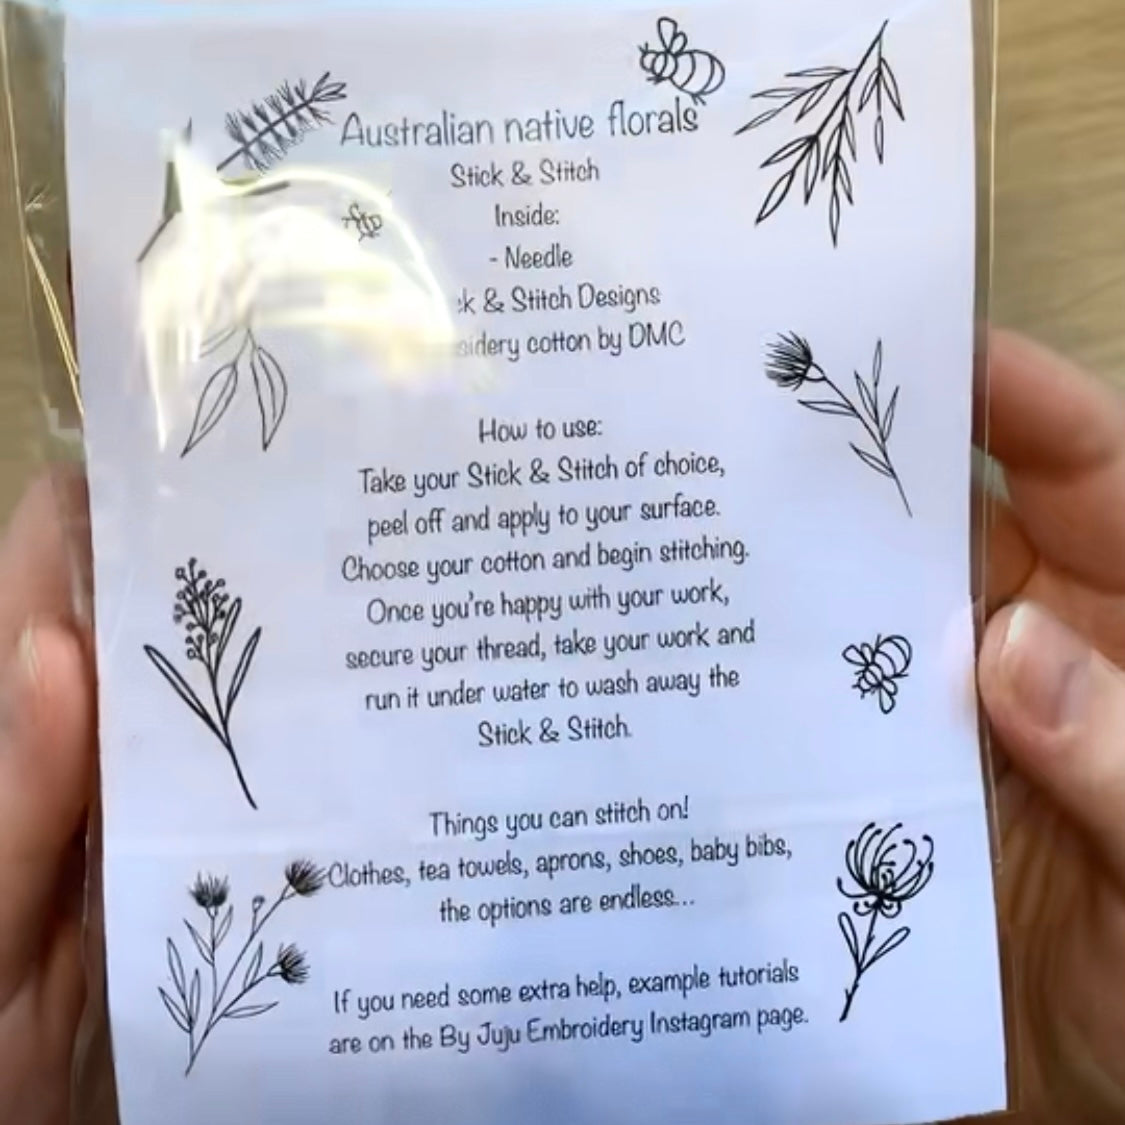 Australian native florals
Stick & Stitch
Inside:
- Needle
& Stitch Designs
cotton by DMC
How to use:
Take your Stick & Stitch of choice,
peel off and apply to your surface.
Choose your cotton and begin stitching.
Once you're happy with your work,
secure your thread, take your work and
run it under water to wash away the
Stick & Stitch.
Things you can stitch on!
Clothes, tea towels, aprons, shoes, baby bibs,
the options are endless...
If you need some extra help, example tutorials
are on the By Juju Embroidery Instagram page.